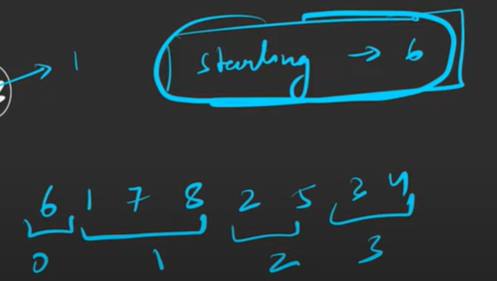 1
starting → 6
6 1 7 8 2 5 3 4
0 1 2 3